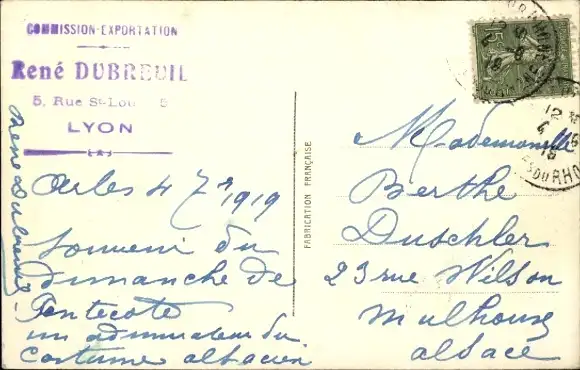 COMMISSION-EXPORTATION
René DUBREUIL
5, Rue St-Lou 5
LYON
René Dubreuil
Arles 4 7r 1919
Souvenir du
dimanche de
Pentecote
un admirateur du
costume alsacien
FABRICATION FRANÇAISE
Mademoiselle
Berthe
Duschler
23 rue Wilson
Mulhouse
Alsace
15